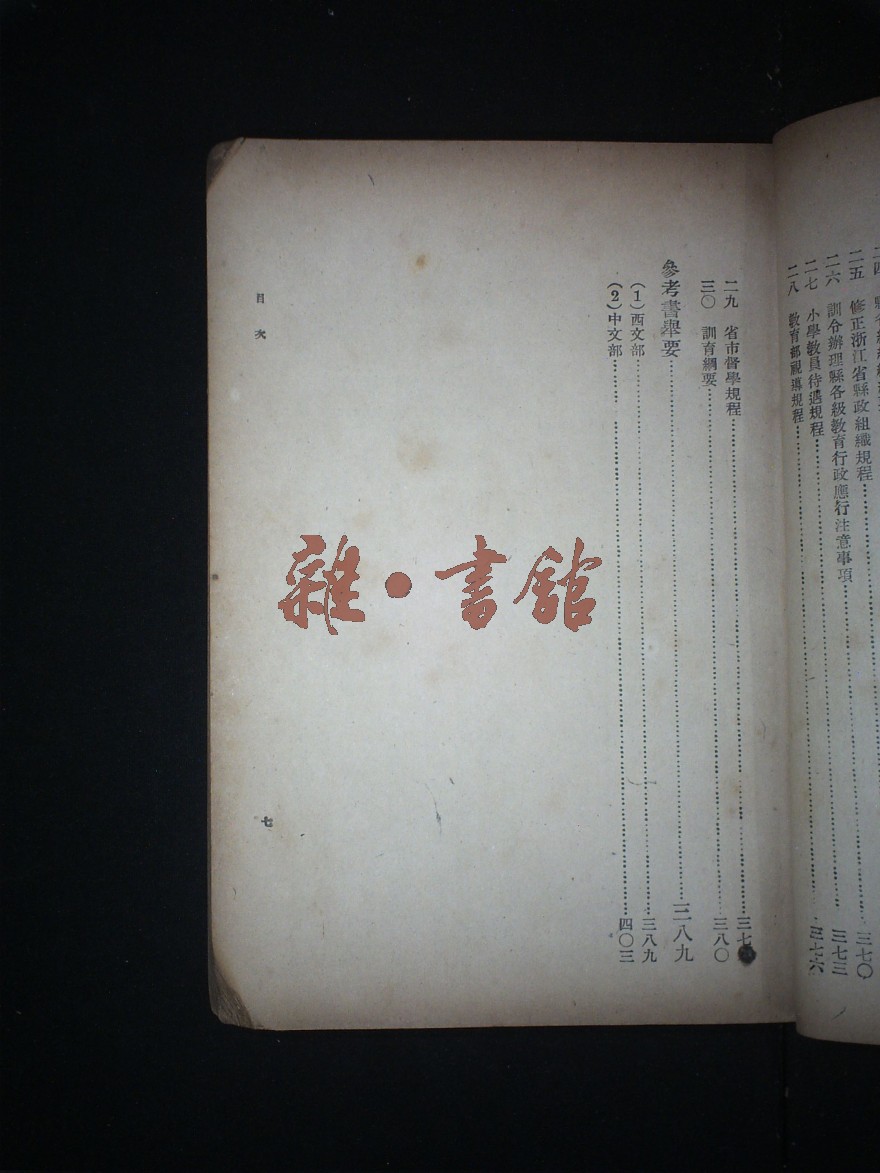 二五 修正浙江省縣政組織規程……三七〇
二六 訓令辦理縣各級教育行政應行注意事項……三七三
二七 小學教員待遇規程……三七六
二八 教育部視導規程……
二九 省市督學規程……三七
三〇 訓育綱要……三八〇
參考書舉要……三八九
(1)西文部……三八九
(2)中文部……四〇三
目次
七
雜·書館